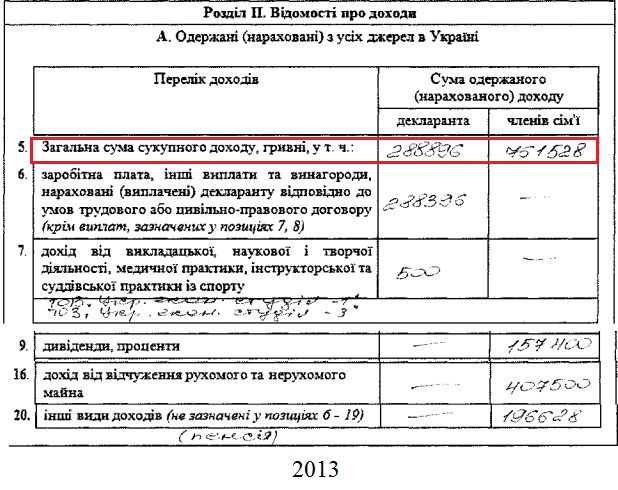 Розділ II. Відомості про доходи
А. Одержані (нараховані) з усіх джерел в Україні
Перелік доходів
Сума одержаного
(нарахованого) доходу
декларанта членів сім'ї
5. Загальна сума сукупного доходу, гривні, у т. ч.: 288896 761528
6. заробітна плата, інші виплати та винагороди,
нараховані (виплачені) декларанту відповідно до
умов трудового або цивільно-правового договору
(крім виплат, зазначених у позиціях 7, 8) 288396 —
7. дохід від викладацької, наукової і творчої
діяльності, медичної практики, інструкторської та
суддівської практики із спорту 500 —
Укр. екон. студії
Укр. екон. студії - 3"
9. дивіденди, проценти — 157400
16. дохід від відчуження рухомого та нерухомого
майна — 407500
20. інші види доходів (не зазначені у позиціях 6 - 19) — 196628
(пенсія)
2013